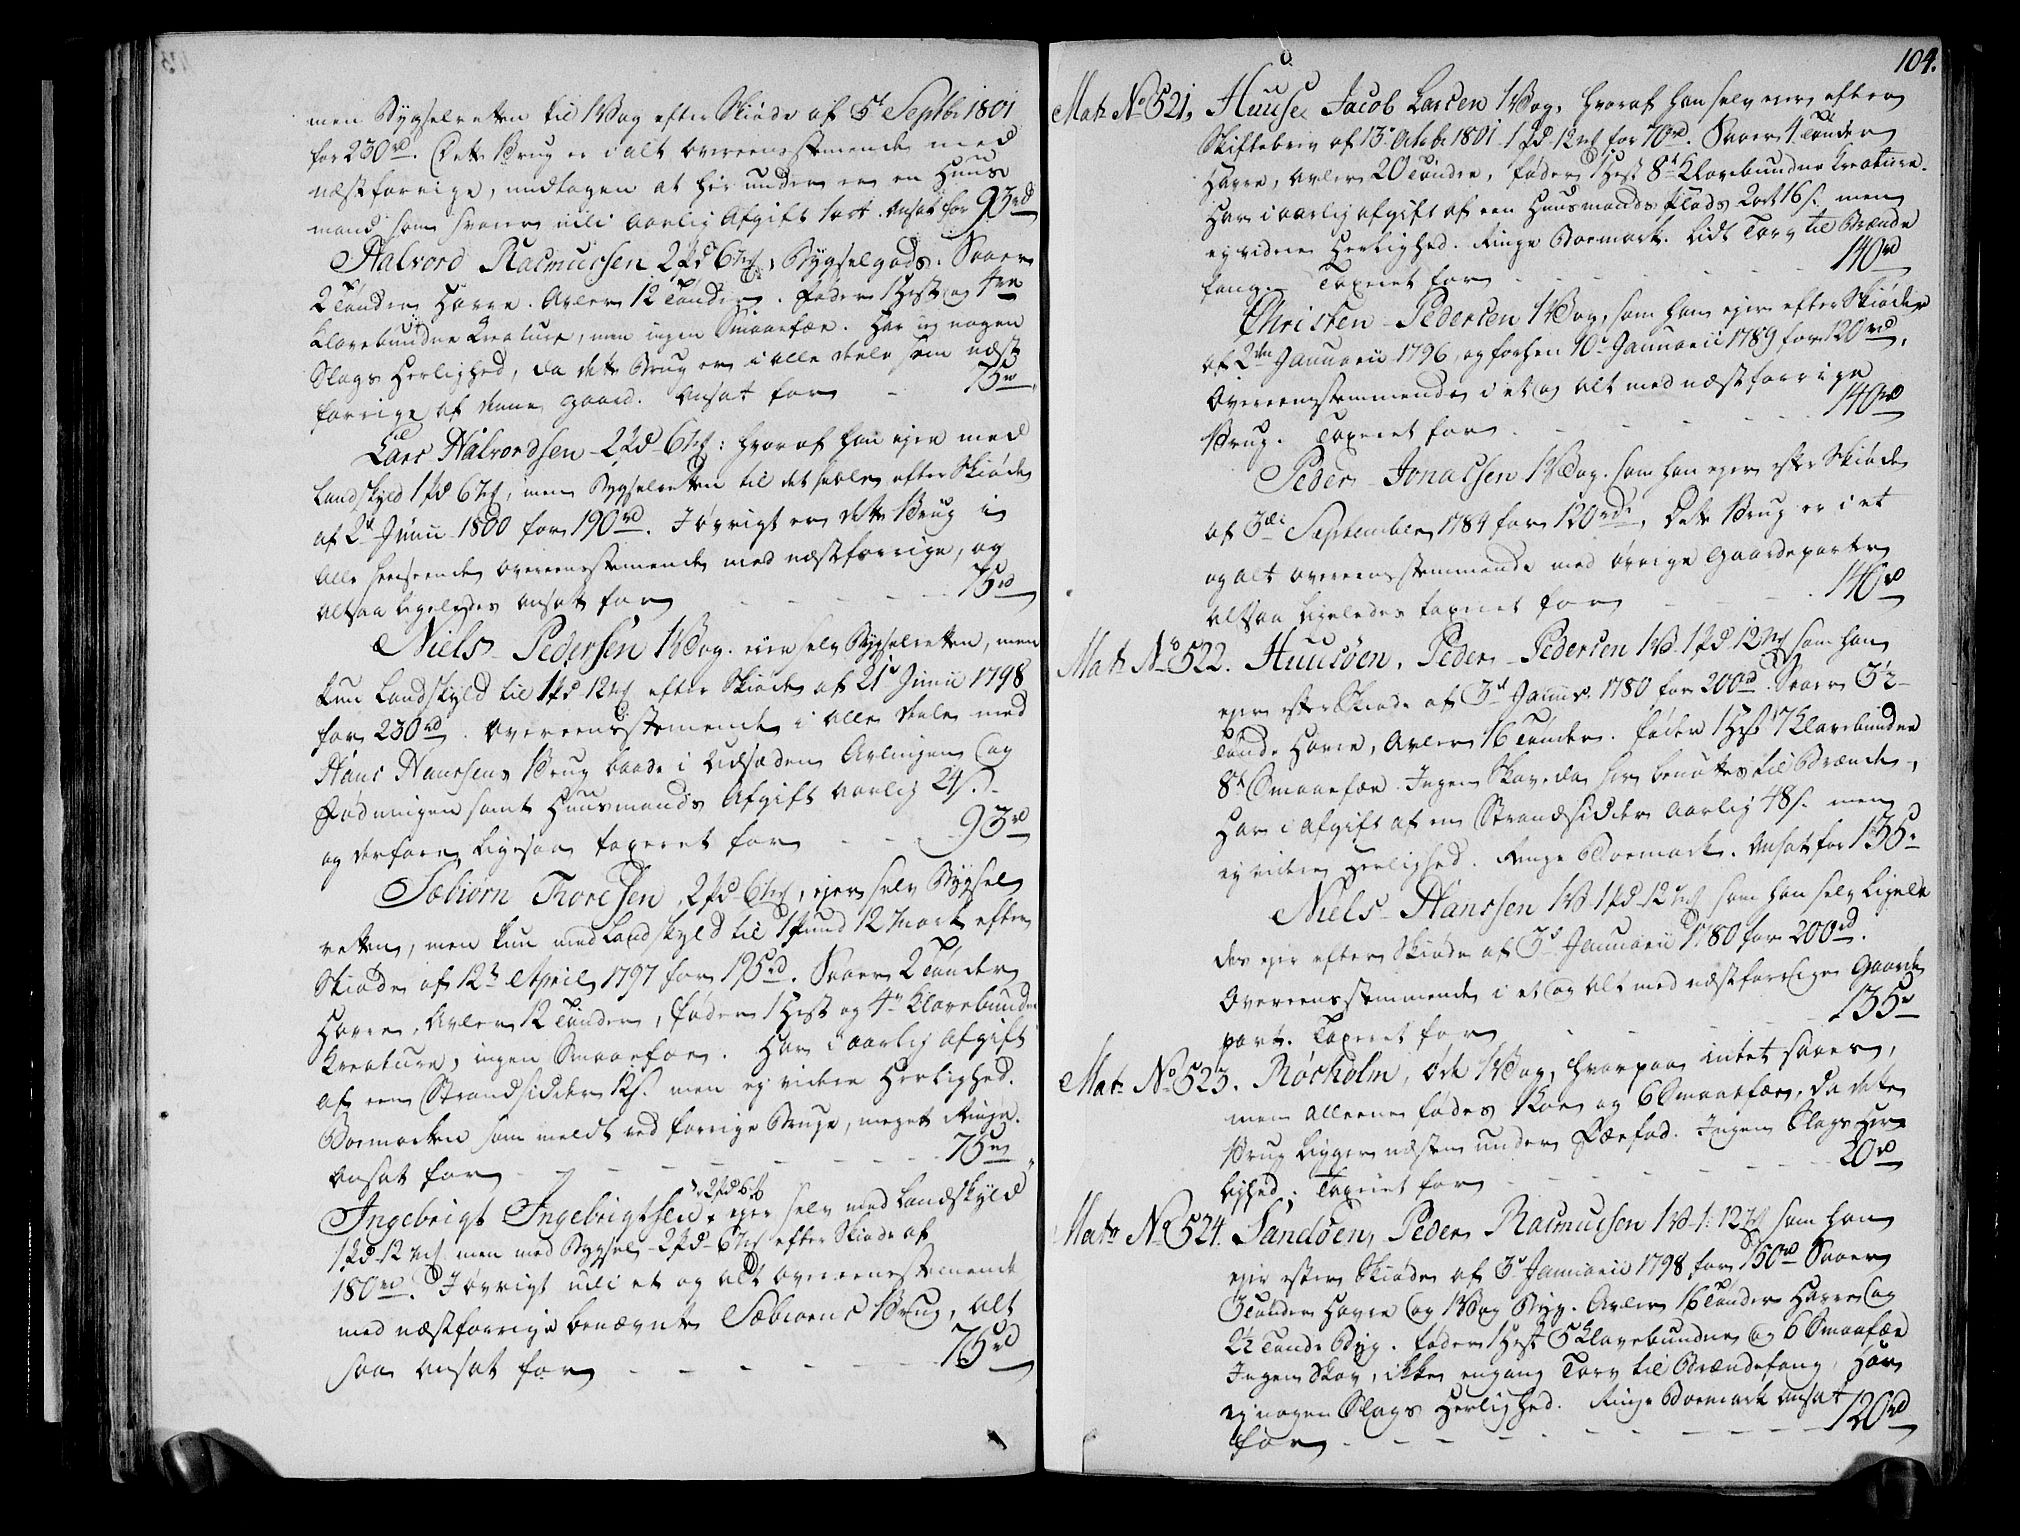 men Bygselretten til 1 Vog efter Skiøde af 5t Septbr 1801
for 230rd. Dette Brug er i alt overeensstemmende med
næstforrige, undtagen at her under er en Huus
mand som svarer aarlig Afgift 1 ort. Ansat for 93rd
Halvord Rasmussen 2 Pd 6 mk, Bygselgods. Saaer
2 Tønder Havre. Avler 12 Tønder. Føder 1 Hest og 4re
Klovebundne Kreature, men ingen Smaafæe. Har ej nogen
Slags Herlighed, da dette Brug er i alle deele som næst
forrige af denne Gaard. Ansat for - 75rd
Lars Halvordsen 2 Pd 6 mk: hvoraf han ejer med
Landskyld 1 Pd 6 mk, men Bygselretten til det heele efter Skiøde
af 2t Junii 1800 for 190rd. I øvrigt er dette Brug i
alle henseender overeensstemmende med næstforrige, og
altsaa ligeledes ansat for - - - - 75rd
Niels Pedersen 1 Vog. eier selv Bygselretten, men
kun Landskyld til 1 Pd 12 mk efter Skiøde af 21t Junii 1798
for 230rd. overeensstemmende i alle deele med
Hans Hanssens Brug baade i Udsæden Avlingen og
Fødningen samt Huusmands Afgift aarlig 24 s.
og derfore ligesaa taxeret for - - 93rd
Sæbiørn Thoresen, 2 Pd 6 mk, ejer selv Bygsel
retten, men kun med Landskyld til 1 Pund 12 Mark efter
Skiøde af 12t April 1797 for 195rd. Saaer 2 Tønder
Havre, Avler 12 Tønder, føder 1 Hest og 4re Klovebundne
Kreature, ingen Smaafæe. Har i aarlig Afgift
af een Strandsidder 12 s. men ej videre Herlighed.
Boemarken som meldt ved forrige Brug, meget Ringe.
Ansat for - - - - - - 75rd
Ingebrigt Ingebrigtsen 2 Pd 6 mk ejer selv med Landskyld
1 Pd 12 mk men med Bygsel 2 Pd 6 mk efter Skiøde af
180rd. I øvrigt i et og alt overeensstemmende
med næstforrige benævnte Sæbiørns Brug, alt
saa ansat for - - - - - - 75rd
104.
Matr No 521, Huuse, Jacob Larsen 1 Vog, hvoraf han selv eier efter
Skiftebrev af 13de Octobr 1801 1 Pd 12 mk for 70rd. Saaer 4 Tønder
Havre, avler 20 Tønder, føder 1 Hest 8te Klovebundne Kreature.
Har i aarlig afgift af een Huusmands Plads 2 ort 16 s. men
ej videre Herlighed. Ringe Boemark. Lidt Torv til Brænde
fang. Taxeret for - - - - 140rd
Christen Pedersen 1 Vog, som han ejer efter Skiøder
af 2den Januarii 1796, og forhen 10de Januarii 1789 for 120rd.
Overeensstemmende i et og alt med næstforrige
Brug. Taxeret for - - - - 140rd
Peder Jonassen 1 Vog. som han ejer efter Skiøde
af 3de September 1784 for 120rd, Dette Brug er i et
og alt overeensstemmende med øvrige Gaardeparter
altsaa ligeledes taxeret for - - - 140rd
Matr No 522. Huusøen, Peder Pedersen 1 V. 1 Pd 12 mk som han
ejer efter Skiøde af 3d Januar. 1780 for 200rd. Saaer 3½
Tønde Havre, Avler 16 Tønder. Føder 1 Hest 7 Klovebundne
8te Smaafæe. Ingen Skov da her benøttes til Brænde,
Har i afgift af en Strandsidder aarlig 48 s. men
ej videre Herlighed. Ringe Boemark. Ansat for 135r
Niels Hanssen 1 V. 1 Pd 12 mk som han selv ligele
des ejer efter Skiøde af 3d Januarii 1780 for 200rd.
Overeensstemmende i et og alt med næstforrige Gaarde
part. Taxeret for - - - 135r
Matr No 523. Rørholm, øde 1 Vog, hvorpaa intet saaes,
men alleene fødes 1 Koe og 6 Smaafæe, da dette
Brug ligger næsten under Færfod. Ingen Slags Her
lighed. Taxeret for - - - - 20rd
Matr No 524. Sandøen, Peder Rasmussen 1 V. 1: 12 mk som han
ejer efter Skiøde af 3d Januarii 1798 for 150rd Saaer
3 Tønder Havre og 1 Vog Byg. Avler 16 Tønder Havre og
2½ Tønde Byg. føder 1 Hest 5 Klovebundne og 6 Smaafæe
Ingen Skov, ikke engang Torv til Brændefang, Har
ej nogen Slags Herlighed. Ringe Boemark ansat
for - - - - - - 120rd